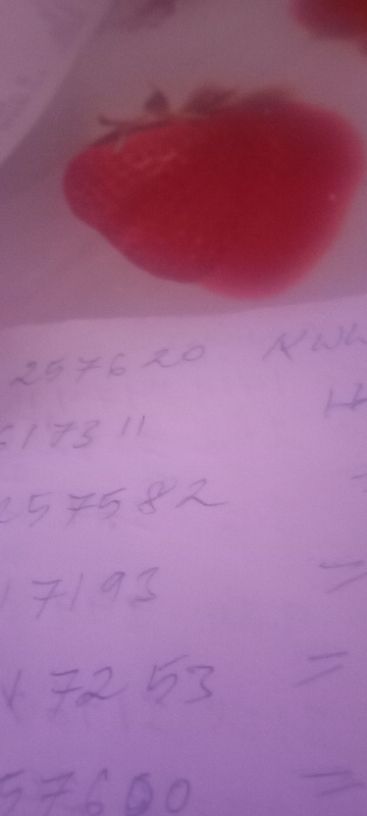 257620
617311
257582
17193 =
7253 =
57600 =